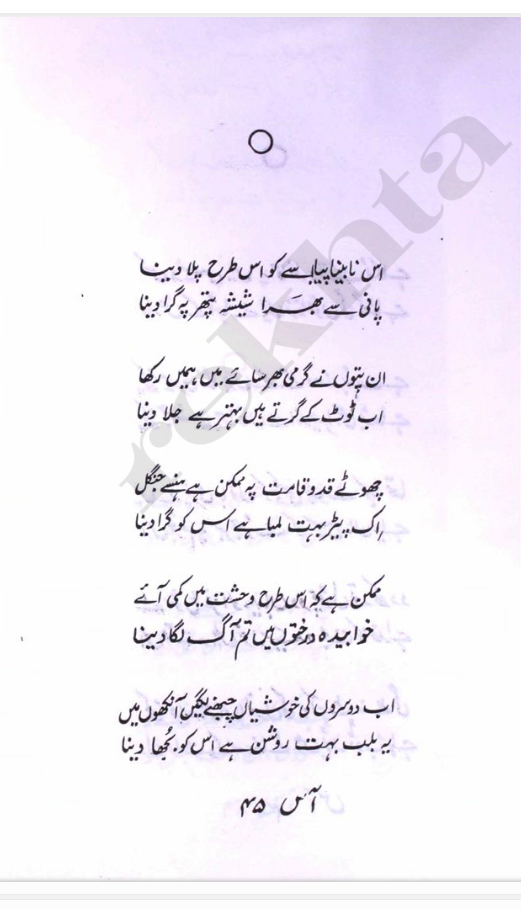 اس نابینا پیاسے کو اس طرح پلا دینا
پانی سے بھرا شیشہ پتھر پہ گرا دینا
ان پتوں نے گرمی بھر سائے میں ہمیں رکھا
اب ٹوٹ کے گرتے ہیں بہتر ہے جلا دینا
چھوٹے قد و قامت پر ممکن ہے ہنسے جنگل
اک پیڑ بہت لمبا ہے اس کو گرا دینا
ممکن ہے کہ اس طرح وحشت میں کمی آئے
خوابیدہ درختوں میں تم آگ لگا دینا
اب دوسروں کی خوشیاں چبھنے لگیں آنکھوں میں
یہ بلب بہت روشن ہے اس کو بجھا دینا
آس ۴۵
rekhta